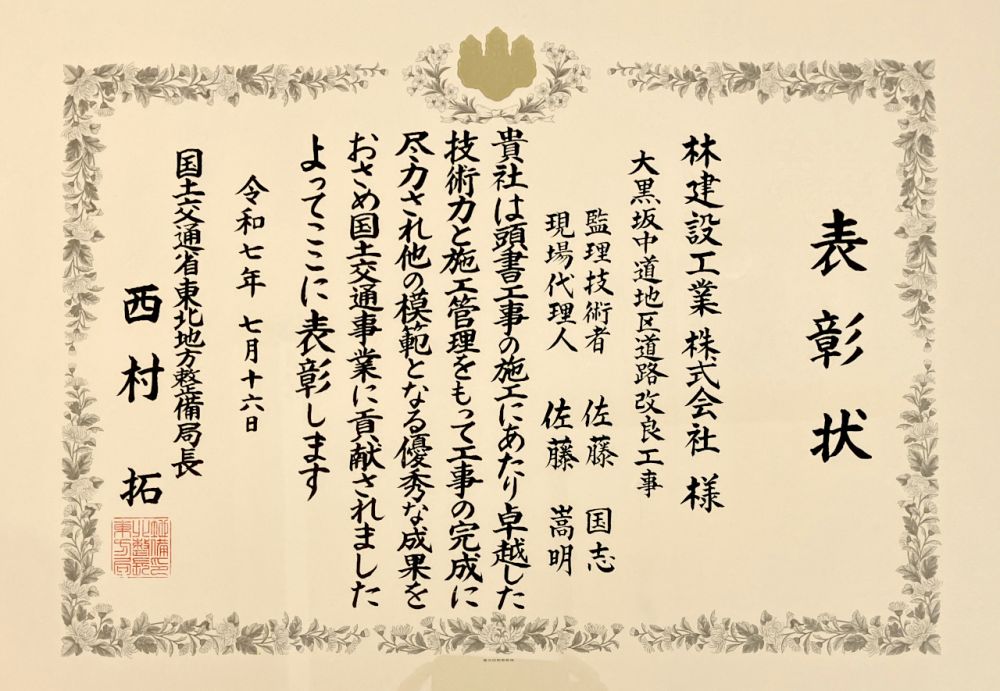 表彰状
林建設工業 株式会社 様
大黒坂中道地区道路改良工事
監理技術者 佐藤 国志
現場代理人 佐藤 嵩明
貴社は頭書工事の施工にあたり卓越した
技術力と施工管理をもって工事の完成に
尽力され他の模範となる優秀な成果を
おさめ国土交通事業に貢献されました
よってここに表彰します
令和七年 七月十六日
国土交通省東北地方整備局長
西村 拓